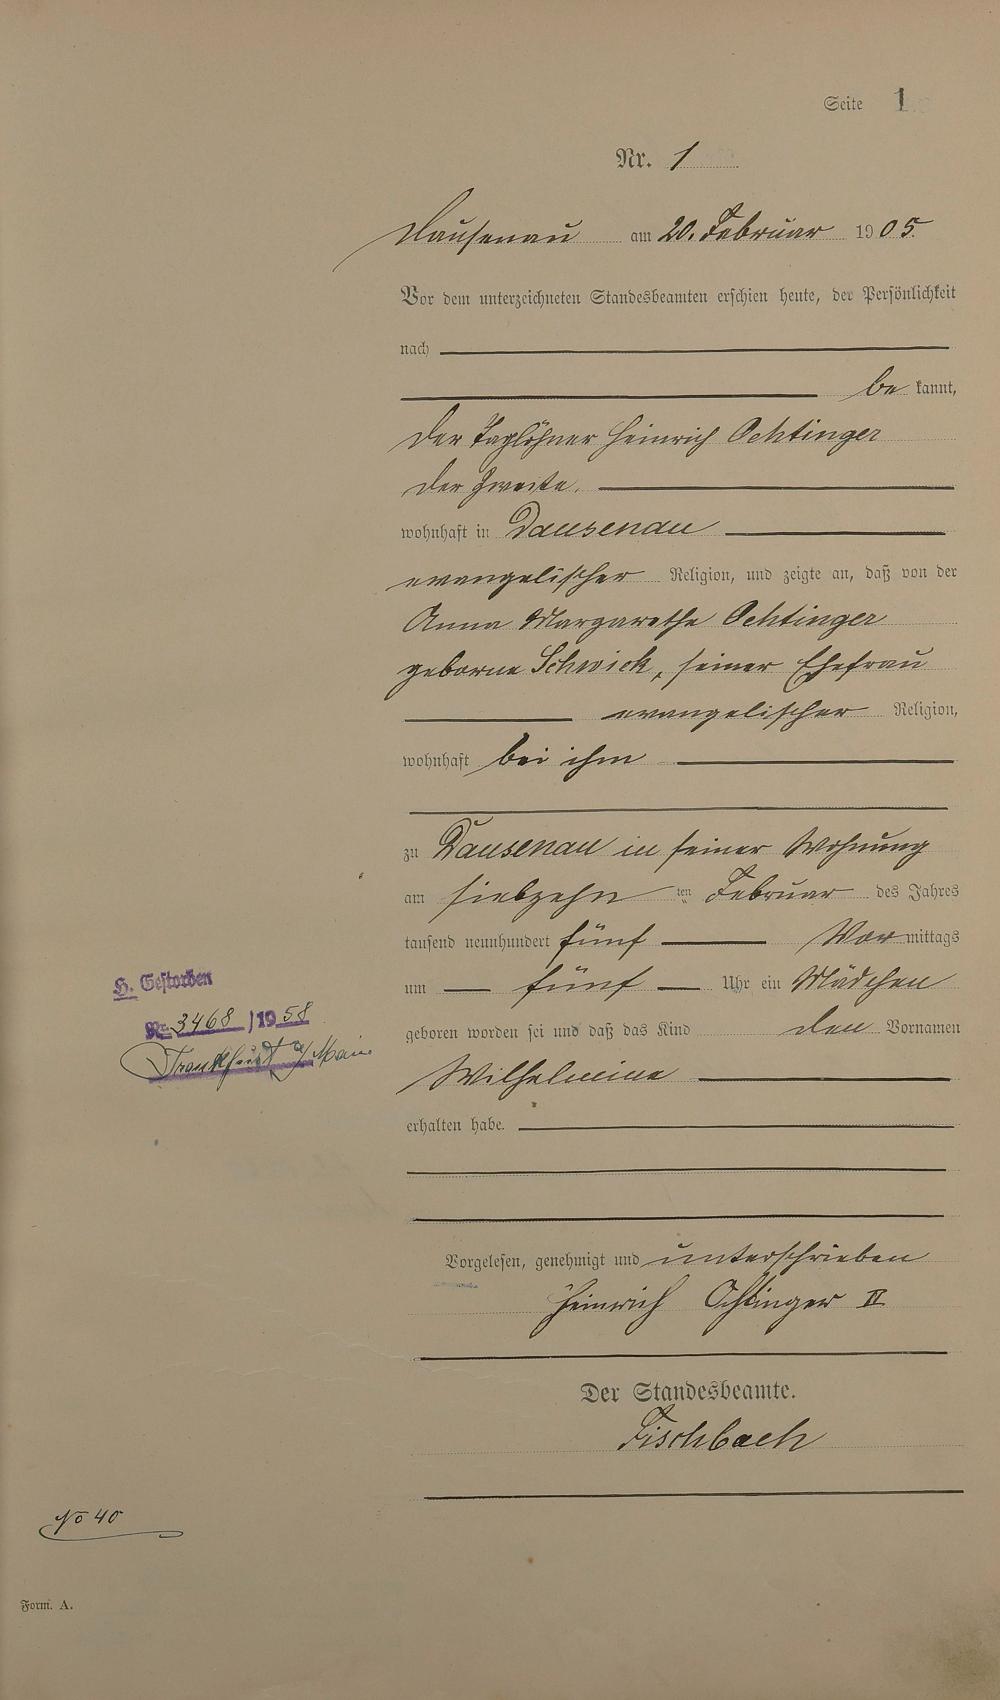 Seite 1
Nr. 1
Dausenau am 20. Februar 1905.
Vor dem unterzeichneten Standesbeamten erschien heute, der Persönlichkeit
nach
be kannt,
der Taglöhner Heinrich Ochtinger
der Zweite.
wohnhaft in Dausenau
evangelischer Religion, und zeigte an, daß von der
Anna Margarethe Ochtinger
geborne Schwick, seiner Ehefrau
evangelischer Religion,
wohnhaft bei ihm
zu Dausenau in seiner Wohnung
am siebzehn ten Februar des Jahres
tausend neunhundert fünf Vor mittags
um fünf Uhr ein Mädchen
geboren worden sei und daß das Kind den Vornamen
Wilhelmine
erhalten habe.
Vorgelesen, genehmigt und unterschrieben
Heinrich Ochtinger II
Der Standesbeamte.
Fischbach
H. Gestorben
Nr. 3468 /1958
Frankfurt a/Main
No 40
Form. A.